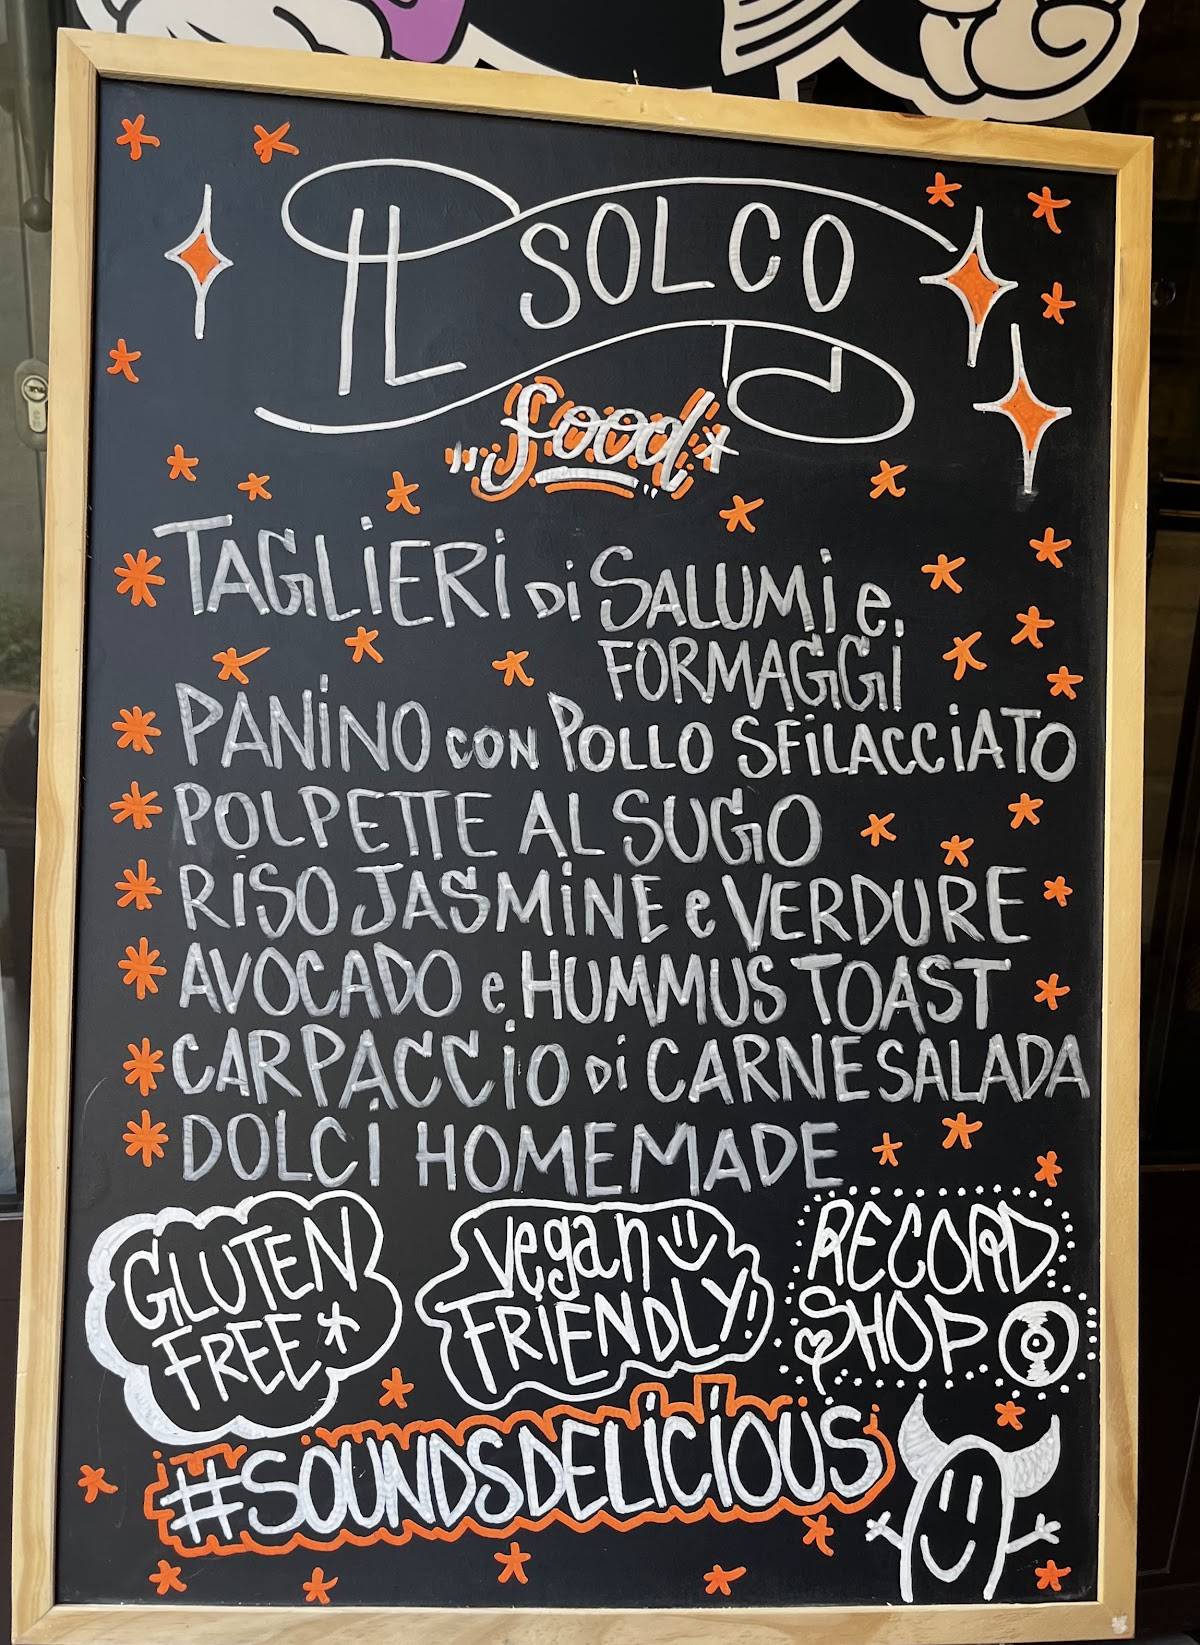 IL SOLCO
food
TAGLIERI Di SALUMi e
FORMAGGi
PANiNO CON POLLO SFiLACCiATO
POLPETTE AL SUGO
RiSO JASMiNE e VERDURE
AVOCADO e HUMMUS TOAST
CARPACCiO Di CARNE SALADA
DOLCi HOMEMADE
GLUTEN
FREE*
Vegan
FRiENDLY!
RECORD
SHOP
#SOUNDSDELiCiOUS